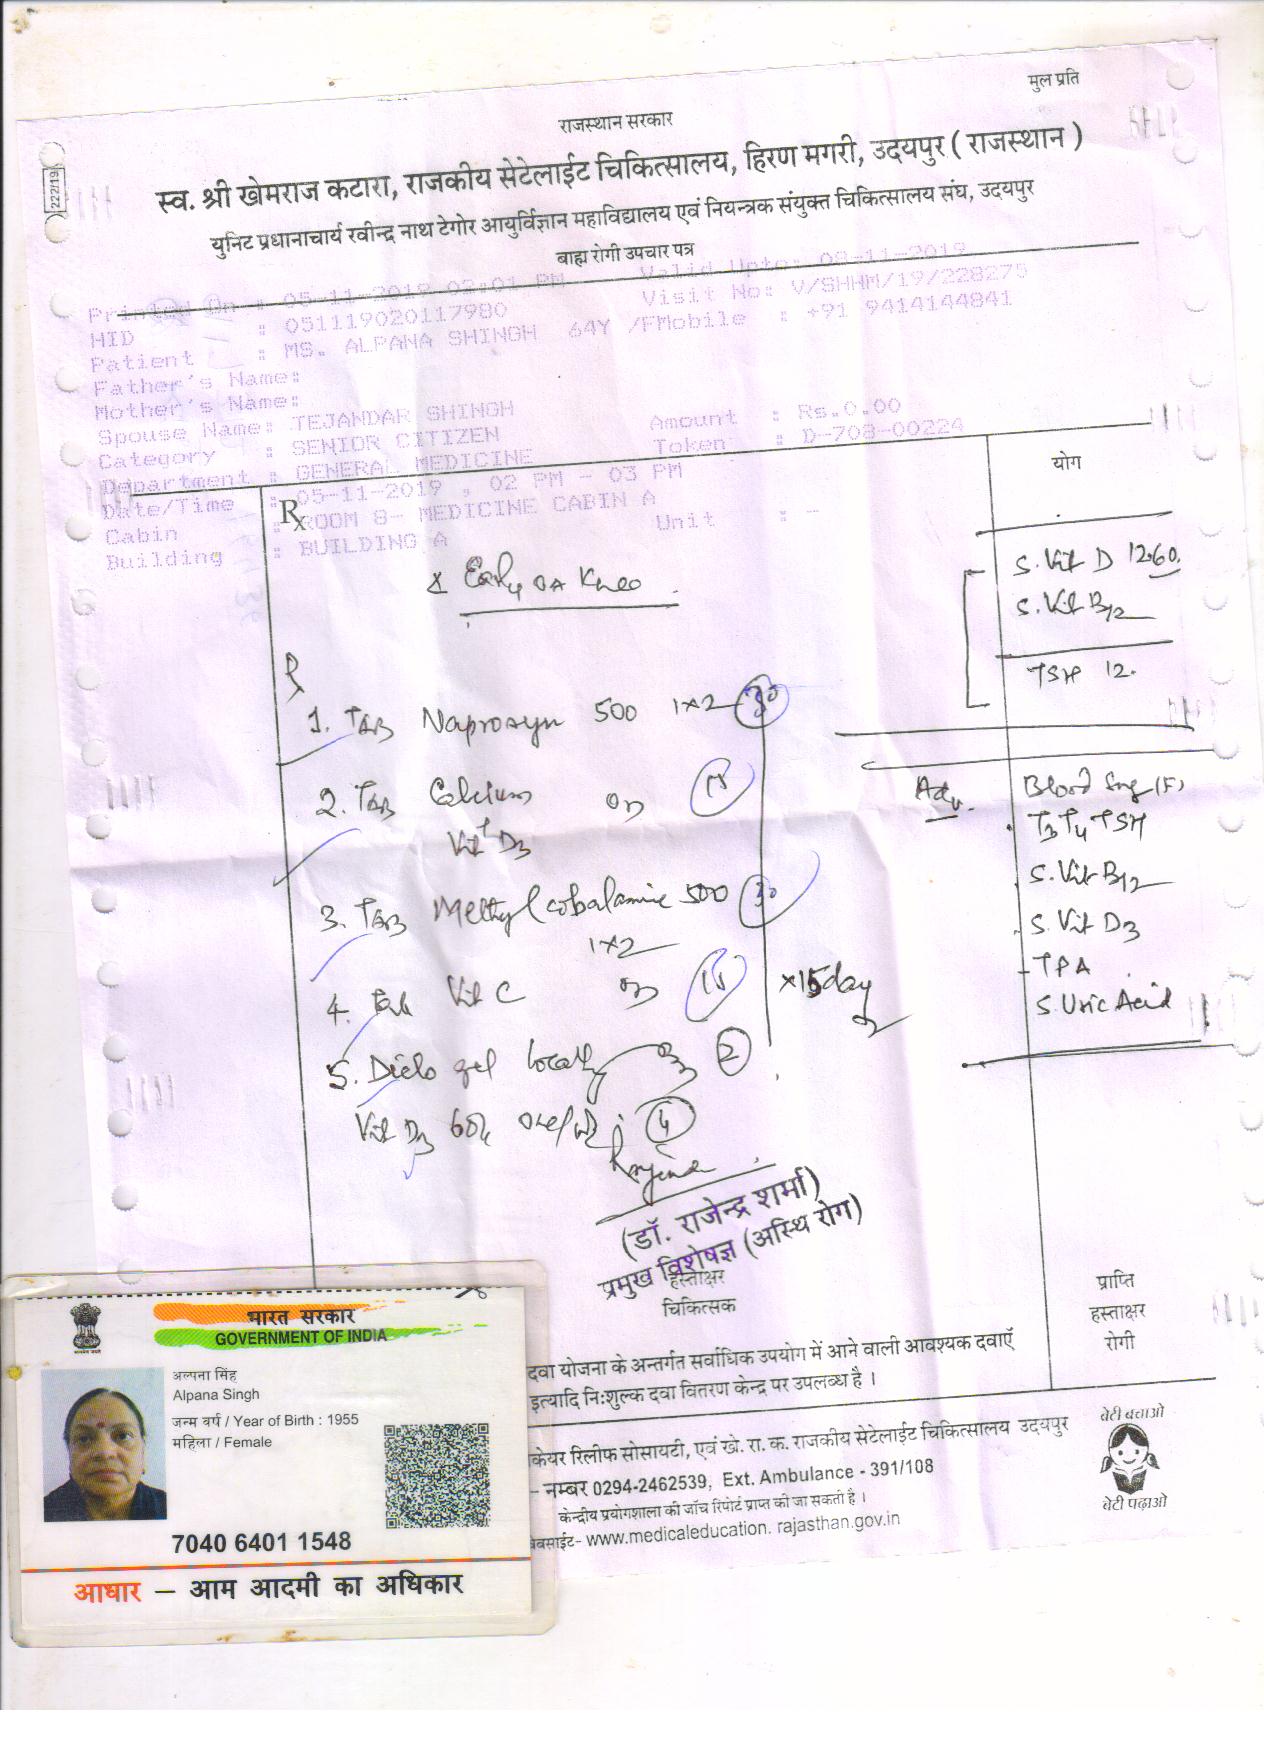 मुल प्रति
222/19
राजस्थान सरकार
स्व. श्री खेमराज कटारा, राजकीय सेटेलाईट चिकित्सालय, हिरण मगरी, उदयपुर ( राजस्थान )
युनिट प्रधानाचार्य रवीन्द्र नाथ टेगोर आयुर्विज्ञान महाविद्यालय एवं नियन्त्रक संयुक्त चिकित्सालय संघ, उदयपुर
बाह्य रोगी उपचार पत्र
Printed On : 05-11-2019 02:01 PM Valid Upto: 08-11-2019
HID : 051119020117980 Visit No: V/SHHM/19/228275
Patient : MS. ALPANA SHINGH 64Y /F Mobile : +91 9414144841
Father's Name:
Mother's Name:
Spouse Name: TEJANDAR SHINGH
Category : SENIOR CITIZEN Amount : Rs.0.00
Department : GENERAL MEDICINE Token : D-703-00224
Date/Time : 05-11-2019 , 02 PM - 03 PM
Cabin : ROOM 8- MEDICINE CABIN A Unit : -
Building : BUILDING A
योग
Rx
Early OA Knee
S. Vit D 12.60.
S. Vit B12
TSH 12.
1. TAB Naprosyn 500 1x2 30
2. TAB Calcium OD 15
Vit D3
3. TAB Methylcobalamine 500 30
1x2
4. Tab Vit C OD 15 x15day
5. Diclo gel locally 2
Vit D3 60k 4
Adv. Blood Sug (F)
T3 T4 TSH
S. Vit B12
S. Vit D3
TPA
S. Uric Acid
(डॉ. राजेन्द्र शर्मा)
प्रमुख विशेषज्ञ (अस्थि रोग)
हस्ताक्षर
चिकित्सक
प्राप्ति
हस्ताक्षर
रोगी
दवा योजना के अन्तर्गत सर्वाधिक उपयोग में आने वाली आवश्यक दवाएँ
इत्यादि निःशुल्क दवा वितरण केन्द्र पर उपलब्ध है ।
केयर रिलीफ सोसायटी, एवं खे. रा. क. राजकीय सेटेलाईट चिकित्सालय उदयपुर
– नम्बर 0294-2462539, Ext. Ambulance - 391/108
केन्द्रीय प्रयोगशाला की जॉच रिपोर्ट प्राप्त की जा सकती है ।
वेबसाईट- www.medicaleducation. rajasthan.gov.in
बेटी बचाओ
बेटी पढ़ाओ
भारत सरकार
GOVERNMENT OF INDIA
अल्पना सिंह
Alpana Singh
जन्म वर्ष / Year of Birth : 1955
महिला / Female
7040 6401 1548
आधार – आम आदमी का अधिकार